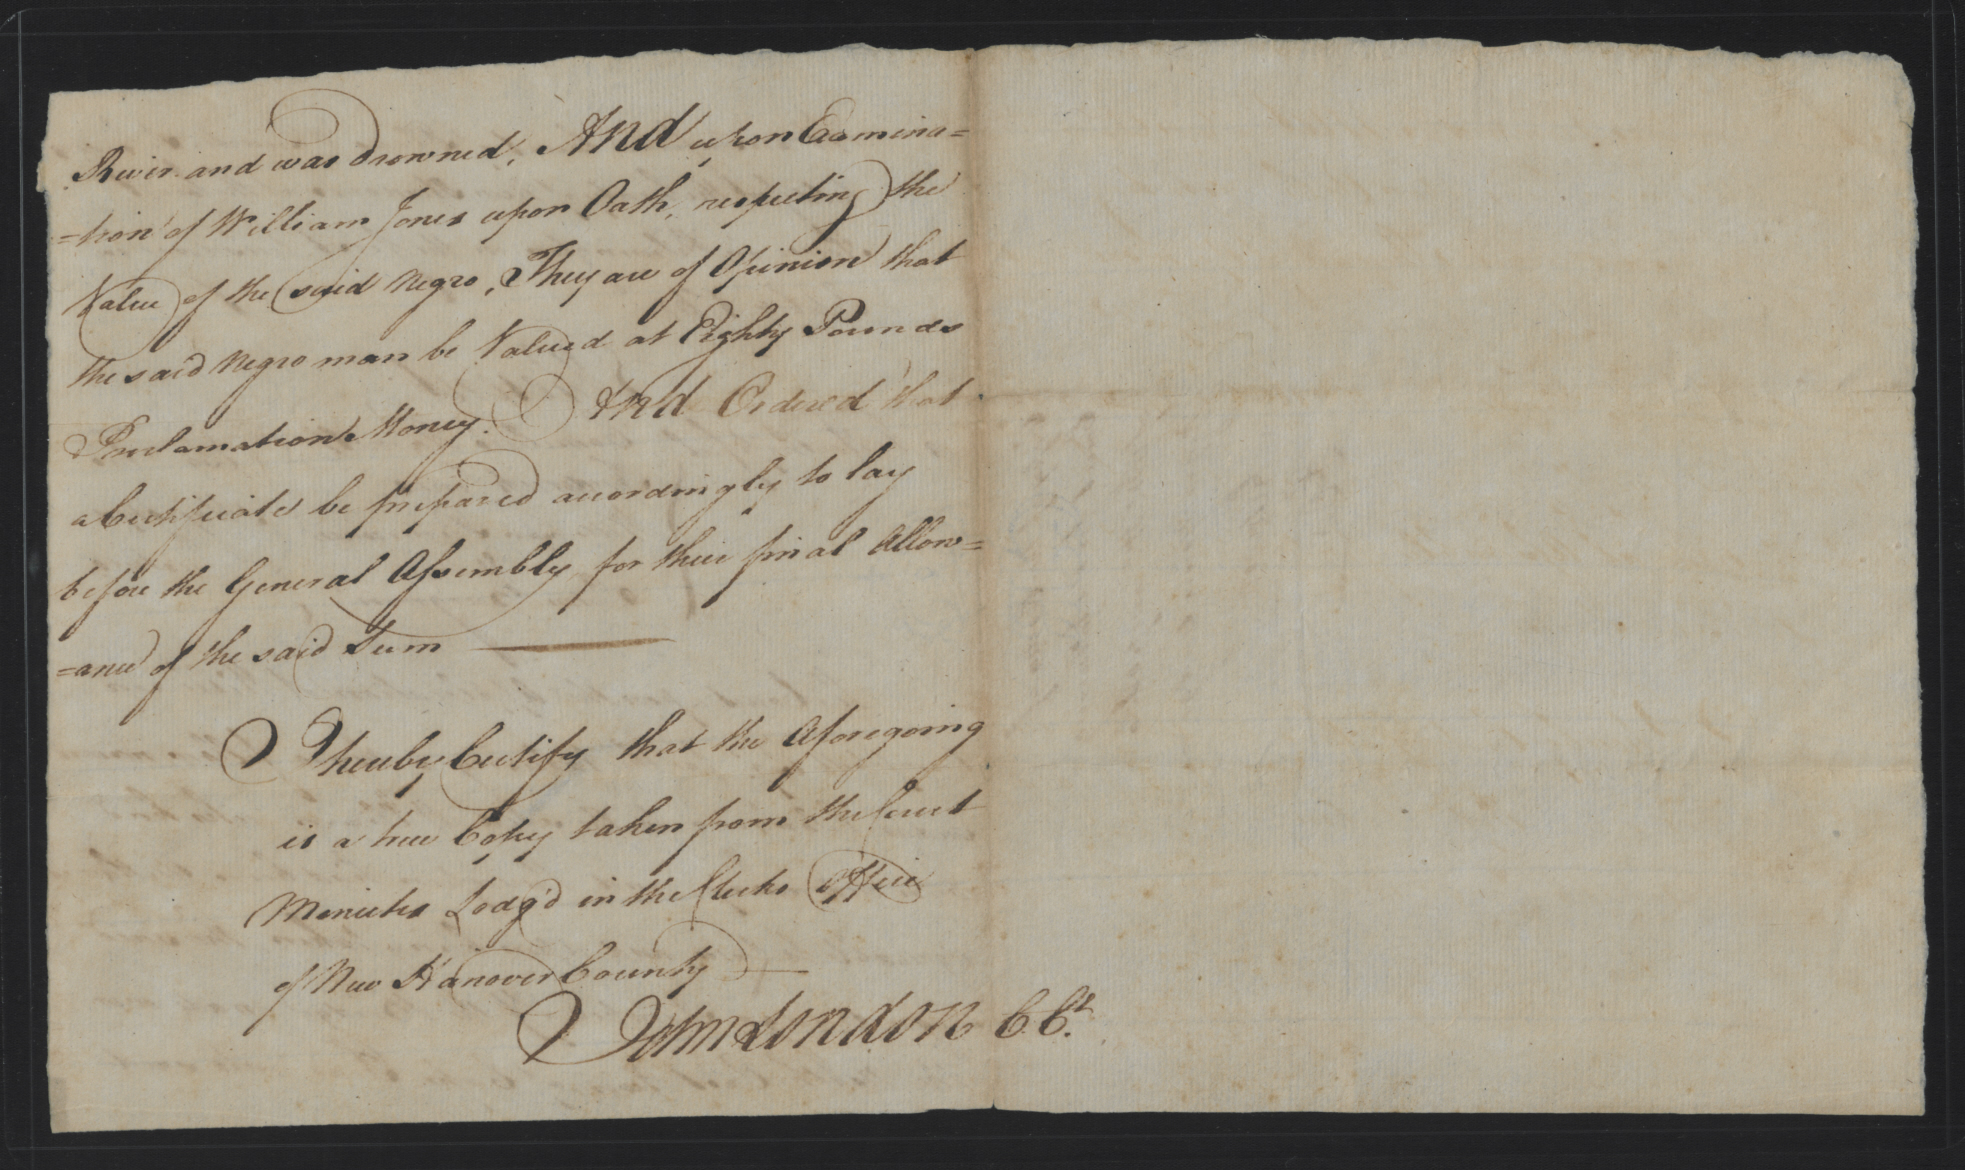 River and was Drowned, And upon Examina=
=tion of William Jones upon Oath, respecting the
Value of the said Negro, They are of Opinion that
the said Negro man be Valued at Eighty Pounds
Proclamation Money. And Ordered that
a Certificate be prepared accordingly to lay
before the General Assembly for their final Allow=
=ance of the said Sum
I hereby Certify that the aforegoing
is a true Copy taken from the Court
Minutes Lodg'd in the Clerks Office
of New Hanover County
John London C. Ct.